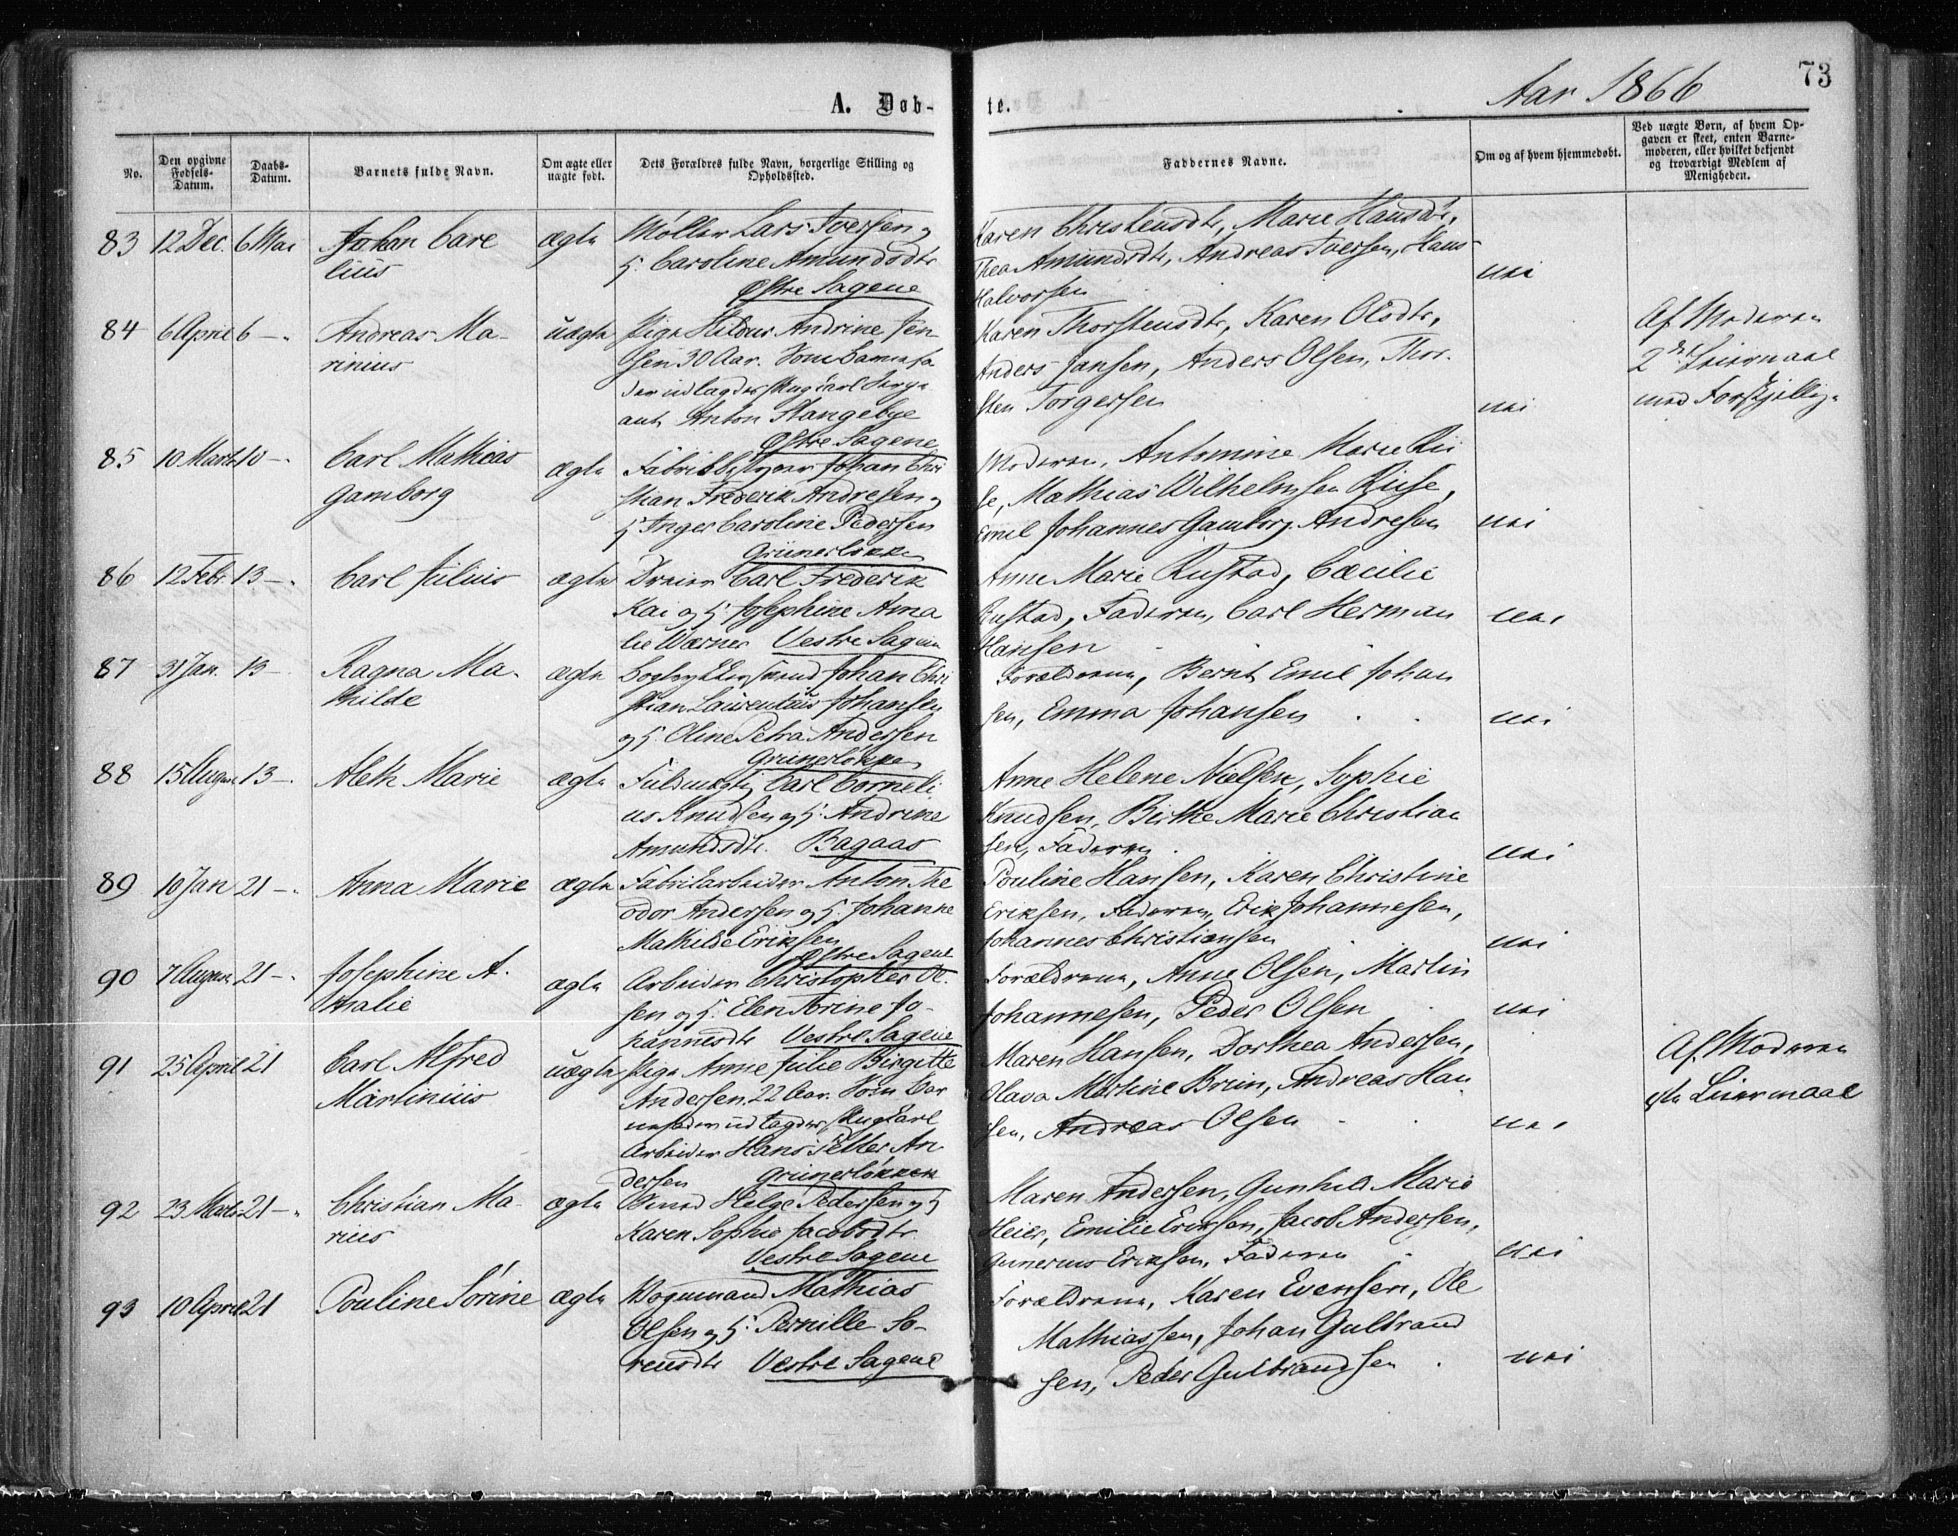 73
Aar 1866
A. Døb-
te.
No.
Den opgivne Fødsels-Datum.
Daabs-Datum.
Barnets fulde Navn.
Om ægte eller uægte født.
Dets Forældres fulde Navn, borgerlige Stilling og Opholdssted.
Faddernes Navne.
Om og af hvem hjemmedøbt.
Ved uægte Børn, af hvem Opgaven er skeet, enten Barnemoderen, eller hvilket bekjendt og troværdigt Medlem af Menigheden.
83 12 Dec. 6 Mai Johan Carelius ægte
Møller Lars Iversen og
H. Caroline Amundsdtr
Østre Sagene
Karen Christensdtr, Marie Hansdtr,
Thea Amundsdtr, Andreas Iversen, Hans
Halvorsen nei
84 6 April 6 —. Andreas Marinius uægte
Pige Andrine Jen
sen 30 Aar. Som Barnefa
der udlagdes Ungkarl Serge
ant Anton Stangebye
Østre Sagene
Karen Thorstensdtr, Karen Olsdtr,
Anders Jansen, Anders Olsen, Thor-
sten Torgersen nei
Af Moderen
2det Leiermaal
med Forskjellige
85 10 Marts 10 —. Carl Mathias Gamborg ægte
Fabrikbestyrer Johan Chri
stian Frederik Andresen og
H. Inger Caroline Pedersen
Grünerløkken
Moderen, Antonine Marie Rii
se, Mathias Wilhelmsen Riise,
Emil Johannes Gamborg Andresen nei
86 12 Febr. 13 —. Carl Julius ægte
Dreier Carl Frederik
Kai og H. Josephine Ama
lie Wærner Vestre Sagene
Anne Marie Rustad, Cæcilie
Rustad, Faderen, Carl Herman
Hansen nei
87 31 Jan. 13 — Ragna Mathilde ægte
Bogtrykkersvend Johan Chri
stian Laurentius Johansen
og H. Oline Petra Andersen
Grünerløkken
Forældrene, Bernt Emil Johan
sen, Emma Johansen nei
88 15 August 13 —. Aleth Marie ægte
Fuldmægtig Carl Corneli
us Knudsen og H. Andrine
Amundsdtr. Bagaas
Anne Helene Nielsen, Sophie
Knudsen, Birthe Marie Christian
sen, Faderen nei
89 10 Jan 21 —. Anna Marie ægte
Fabrikarbeider Anton The
odor Andersen og H. Johanne
Mathilde Eriksen
Østre Sagene
Pouline Hansen, Karen Christine
Eriksen, Faderen, Erik Johannesen,
Johannes Christiansen nei
90 7 August 21 —. Josephine Athalie ægte
Arbeider Christopher Ol-
sen og H. Elen Torine Jo-
hannesdtr Vestre Sagene
Forældrene, Anne Olsen, Martin
Johannesen, Peder Olsen nei
91 25 April 21 Carl Alfred Martinius uægte
Pige Anne Julie Birgitte
Andersen 22 Aar. Som Bar
nefader udlagdes Ungkarl
Arbeider Hans Petter An
dersen Grünerløkken
Maren Hansen, Dorthea Andersen,
Olava Martine Bruun, Andreas Han
sen, Andreas Olsen nei
Af Moderen
1ste Leiermaal
92 23 Marts 21 —. Christian Marius ægte
Helge Pedersen og H
Karen Sophie Jacobsdtr
Vestre Sagene
Maren Andersen, Gunhild Marie
Heier, Emilie Eriksen, Jacob Andersen,
Gunerius Eriksen, Faderen nei
93 10 April 21 Pouline Sørine ægte
Vognmand Mathias
Olsen og H. Pernille Sø-
rensdtr Vestre Sagene
Forældrene, Karen Evensen, Ole
Mathiassen, Johan Gulbrand
sen, Peder Gulbrandsen nei